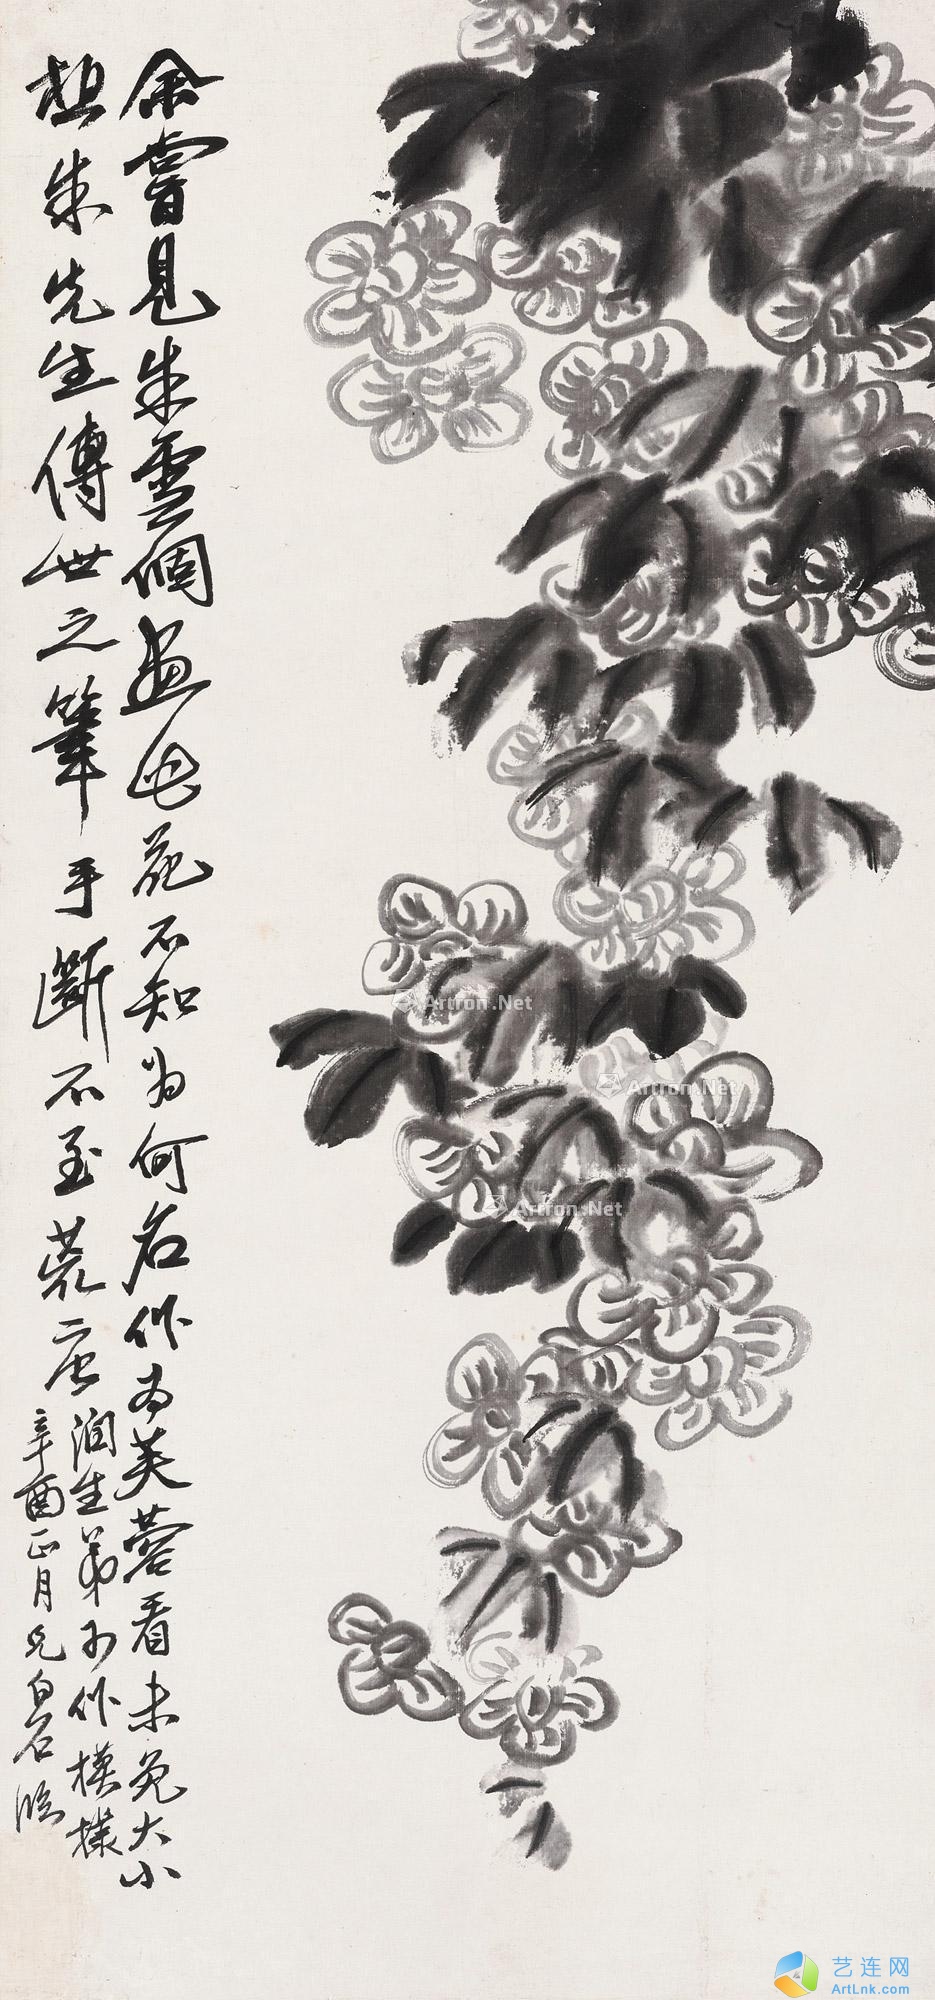 余嘗見朱雪個畫此花不知为何名作为芙蓉看未免大小
想朱先生傳世之筆手斷不至荒唐
润生弟子作模樣
辛酉正月兄白石臨
Artron.Net
Artron.Net
Artron.Net
艺连网
ArtLnk.com